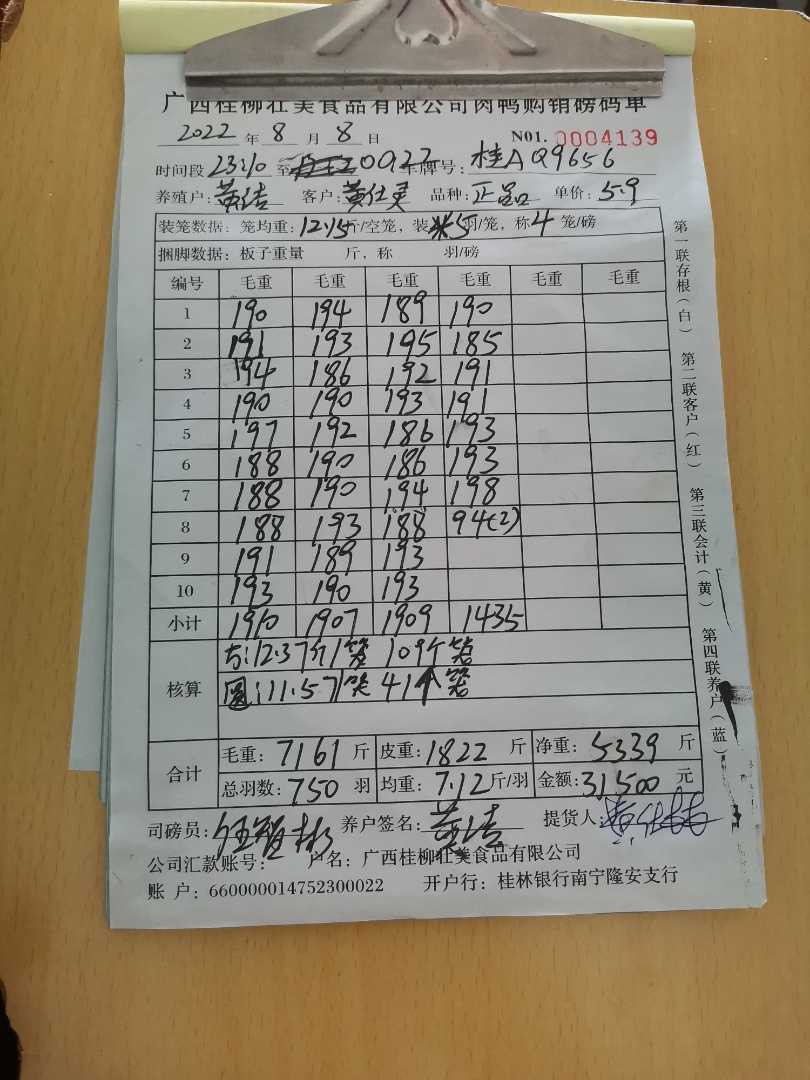 广西桂柳壮美食品有限公司肉鸭购销磅码单
2022 年 8 月 8 日 N01. 0004139
时间段 23:10 至 00:22 车牌号: 桂AQ9656
养殖户: 黄结 客户: 黄仕灵 品种: 正品 单价: 5.9
装笼数据: 笼均重: 12.15 斤/空笼, 装 5 羽/笼, 称 4 笼/磅
捆脚数据: 板子重量 斤, 称 羽/磅
编号 毛重 毛重 毛重 毛重 毛重 毛重
1 190 194 189 190
2 191 193 195 185
3 194 186 192 191
4 190 190 193 191
5 197 192 186 193
6 188 190 186 193
7 188 190 194 198
8 188 193 188 94(2)
9 191 189 193
10 193 190 193
小计 1910 1907 1909 1435
核算
方:12.37斤/笼 109个笼
圆:11.57/笼 41个笼
合计
毛重: 7161 斤 皮重: 1822 斤 净重: 5339 斤
总羽数: 750 羽 均重: 7.12 斤/羽 金额: 31500 元
司磅员: 养户签名: 黄结 提货人:
公司汇款账号: 户名: 广西桂柳壮美食品有限公司
账 户: 660000014752300022 开户行: 桂林银行南宁隆安支行
第一联存根(白) 第二联客户(红) 第三联会计(黄) 第四联养户(蓝)